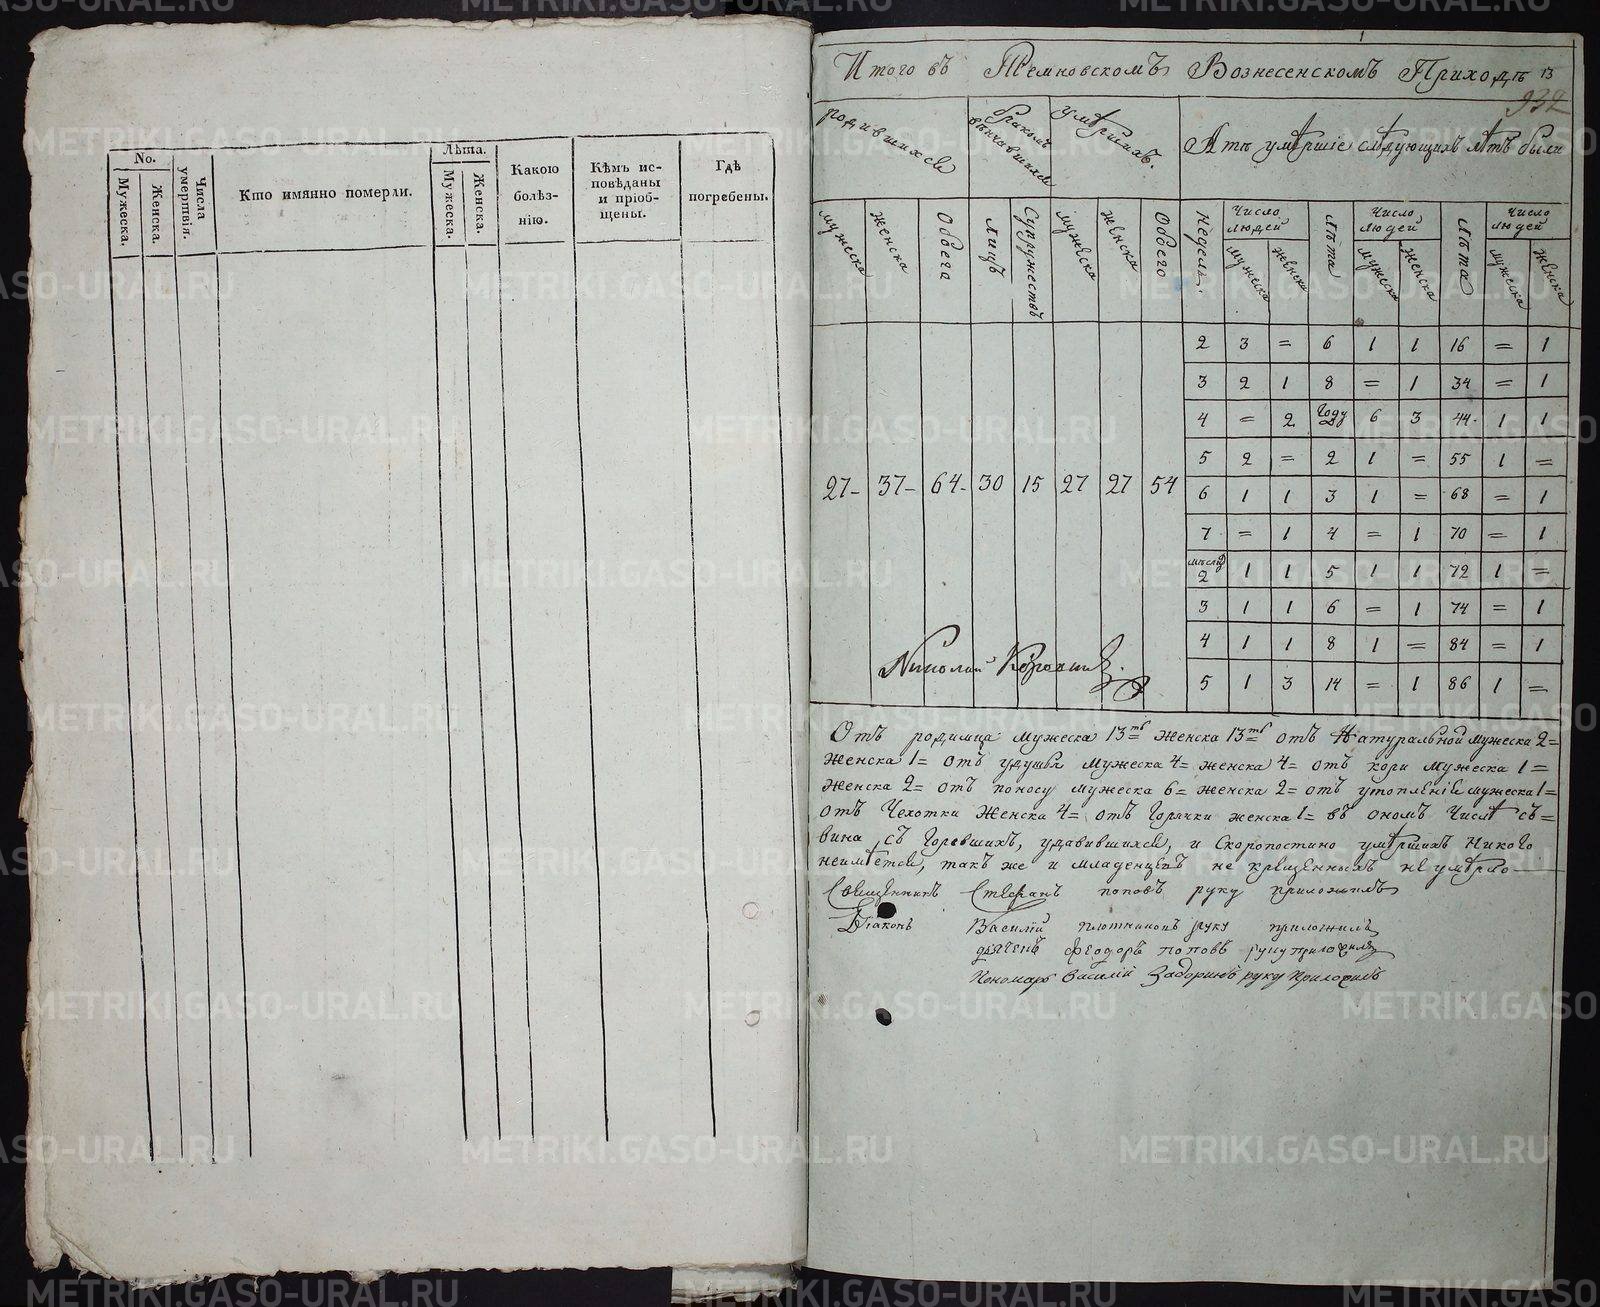 No.
Мужеска.
Женска.
Числа умертвія.
Кто имянно померли.
Лѣта.
Мужеска.
Женска.
Какою
болѣз-
нію.
Кѣмъ ис-
повѣданы
и пріоб-
щены.
Гдѣ
погребены.
Итого въ Темновскомъ Вознесенскомъ Приходѣ 13
932
родившихся
бракомъ вѣнчавшихся
умершихъ.
А тѣ умершіе слѣдующихъ лѣтъ были
мужеска
женска
Обоега
лицъ
Супружествъ
мужеска
женска
Обоего
Недель.
Число людей
мужеска
женска
лѣта
Число людей
мужеска
женска
лѣта
Число людей
мужеска
женска
2 3 = 6 1 1 16 = 1
3 2 1 8 = 1 34 = 1
4 = 2 году 6 3 44 1 1
5 2 = 2 1 = 55 1 =
27 37 64 30 15 27 27 54
6 1 1 3 1 = 68 = 1
7 = 1 4 = 1 70 = 1
2 1 1 5 1 1 72 1 =
3 1 1 6 = 1 74 = 1
4 1 1 8 1 = 84 = 1
5 1 3 14 = 1 86 1 =
Николай
Отъ родимца мужеска 13ть женска 13ть отъ Натуральной мужеска 2=
женска 1= отъ удушья мужеска 4= женска 4= отъ кори мужеска 1=
женска 2= отъ поносу мужеска 6= женска 2= отъ утопленіе мужеска 1=
отъ Чехотки женска 4= отъ горячки женска 1= въ ономъ числѣ съ=
вина, съ горевшихъ, удавившихся, и Скоропостино умершихъ Никого
неимѣется, такъ же и младенцевъ не крещенныхъ не умерло
Священникъ Стефанъ поповъ руку приложилъ
Діаконъ Василій плотниковъ руку приложилъ
дьячекъ Феодоръ поповъ руку приложилъ
Пономарь Василій Задоринъ руку приложилъ
METRIKI.GASO-URAL.RU